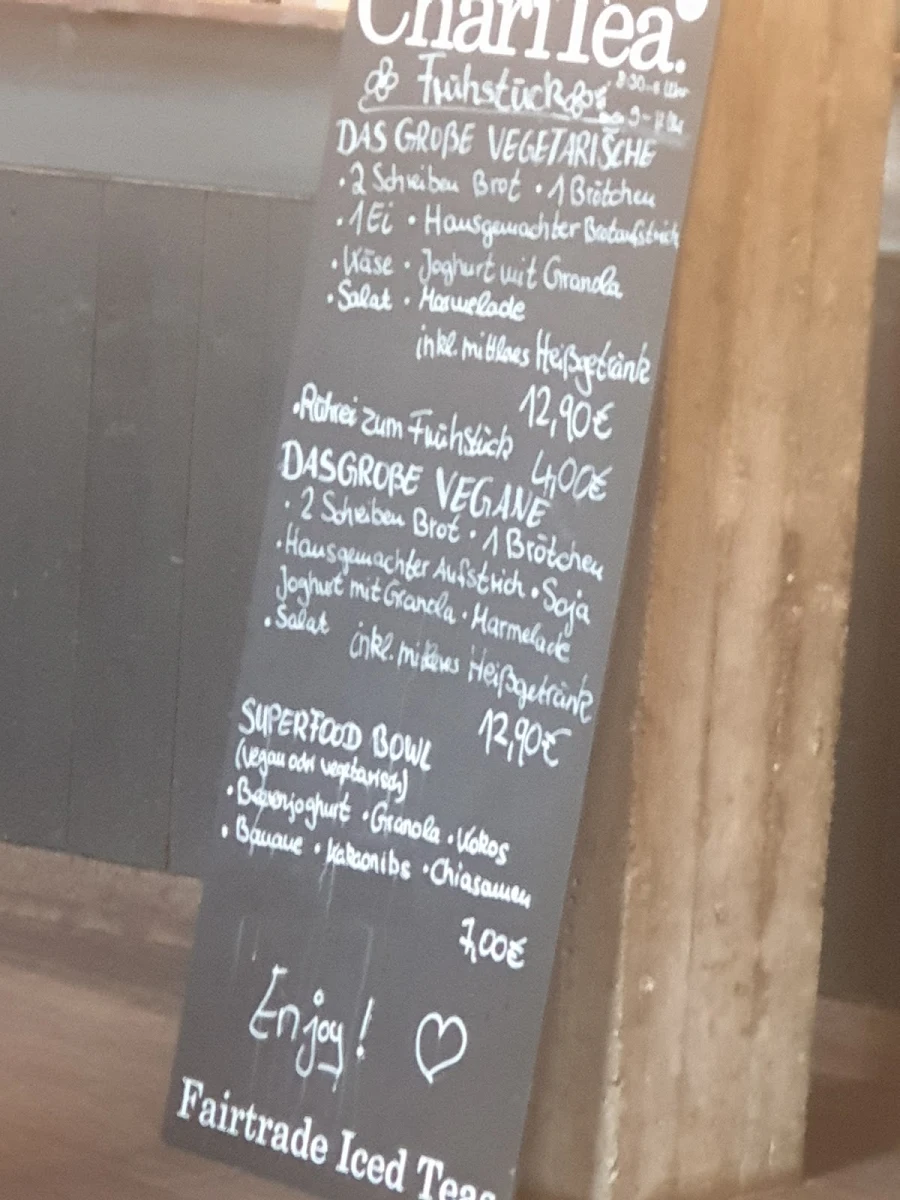 ChariTea.
Frühstück
DAS GROßE VEGETARISCHE
• 2 Scheiben Brot • 1 Brötchen
• 1 Ei • Hausgemachter Brotaufstrich
• Käse • Joghurt mit Granola
• Salat • Marmelade
inkl. mittleres Heißgetränk
12,90€
• Rührei zum Frühstück 4,00€
DAS GROßE VEGANE
• 2 Scheiben Brot • 1 Brötchen
• Hausgemachter Aufstrich • Soja
Joghurt mit Granola • Marmelade
• Salat
inkl. mittleres Heißgetränk
12,90€
SUPERFOOD BOWL
(vegan oder vegetarisch)
• Beerenjoghurt • Granola • Kokos
• Banane • Kakaonibs • Chiasamen
7,00€
Enjoy!
Fairtrade Iced Teas